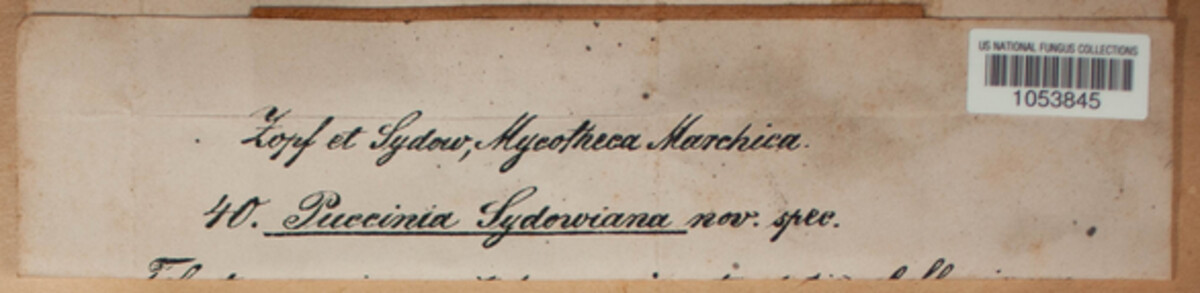 US NATIONAL FUNGUS COLLECTIONS
1053845
Zopf et Sydow, Mycotheca Marchica.
40. Puccinia Sydowiana nov. spec.